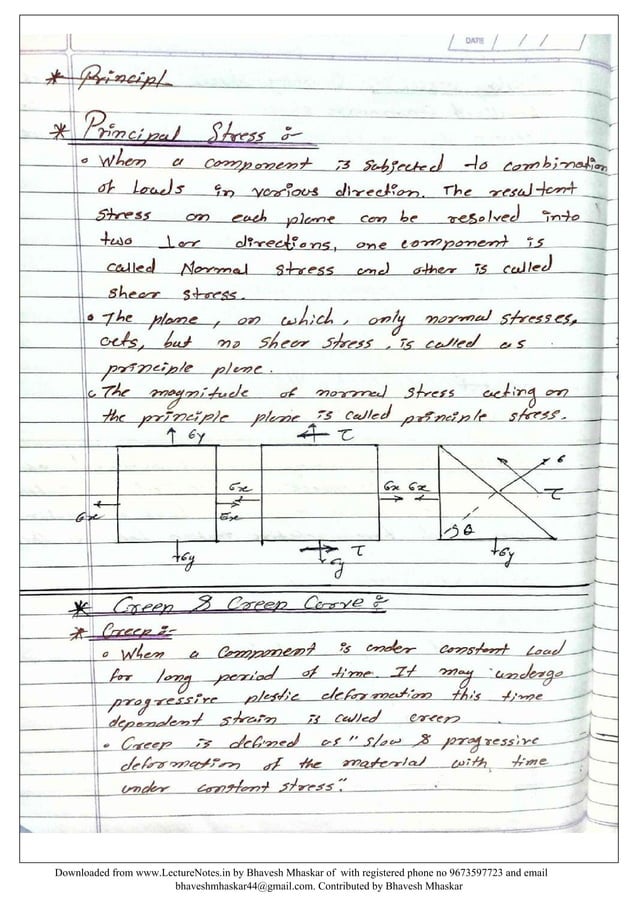 DATE / /
* Principl
* Principal Stress :-
• When a component is Subjected to combination
of Loads in various direction. The resultent
stress on each plane can be resolved into
two ⊥ar directions, one component is
called Normal Stress and other is called
shear stress.
• The plane, on which, only normal stresses,
acts, but no shear stress, is called as
principle plane.
• The magnitude of normal stress acting on
the principle plane is called principle stress.
σy τ
σx σx σx σx σx σ τ
θ
σy τ σy σy
* Creep & Creep Coorve :-
* Creep :-
• When a component is under constant Load
for long period of time. It may undergo
progressive plestic deformation this time
dependent strain is called creep
• Creep is defined as "slow & progressive
deformation of the material with time
under constant stress".
Downloaded from www.LectureNotes.in by Bhavesh Mhaskar of with registered phone no 9673597723 and email
bhaveshmhaskar44@gmail.com. Contributed by Bhavesh Mhaskar